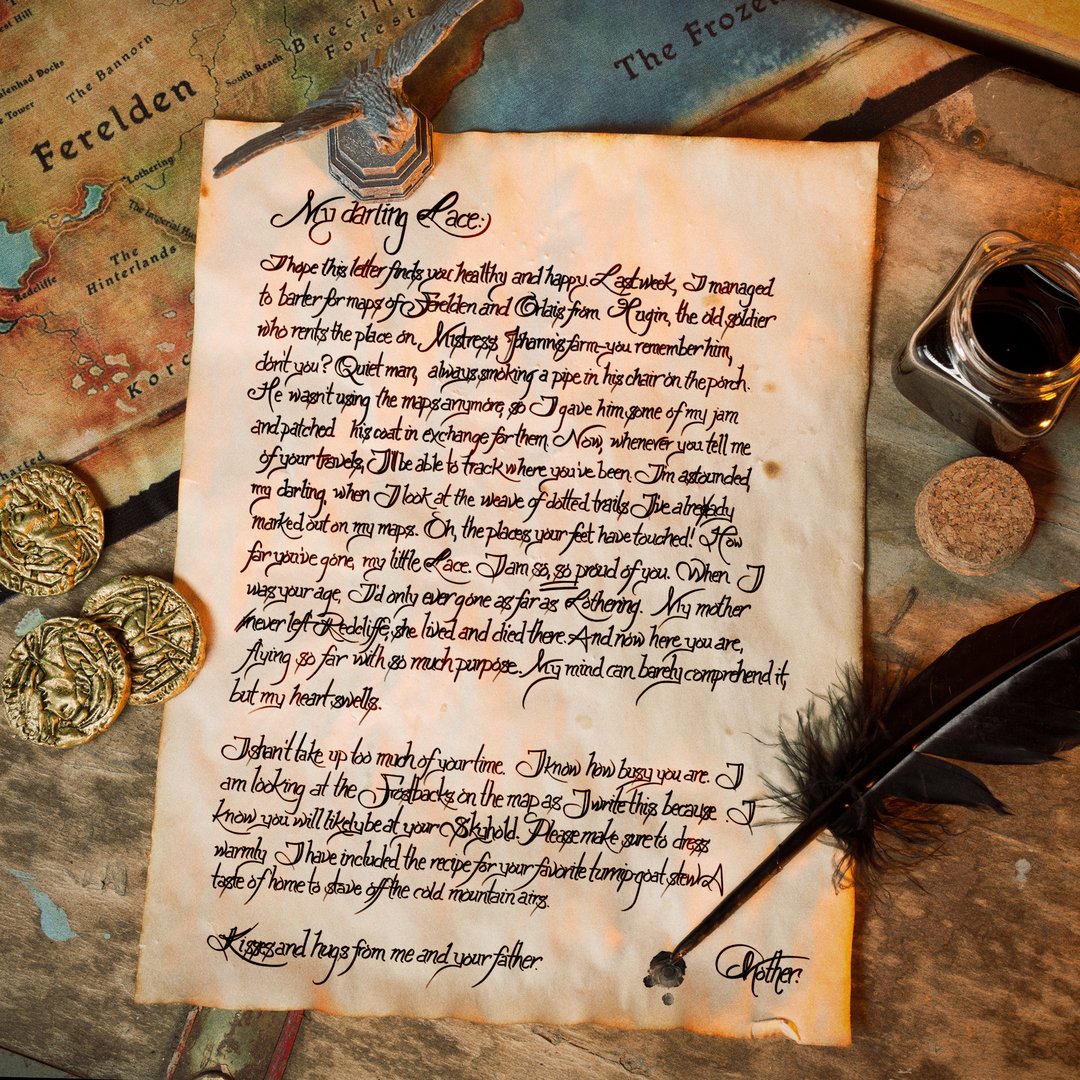 est Hill
The Bannorn
Brecili
Forest
South Reach
alenhad Docke
Tower
Ferelden
The Frozen
Lothering
The Imperial Hi
The
Hinterlands
Redcliffe
Korc
My darling Lace:
I hope this letter finds you healthy and happy. Last week, I managed
to barter for maps of Ferelden and Orlais from Hugin, the old soldier
who rents the place on Mistress Johanns farm—you remember him,
don't you? Quiet man, always smoking a pipe in his chair on the porch.
He wasn't using the maps anymore, so I gave him some of my jam
and patched his coat in exchange for them. Now, whenever you tell me
of your travels, I'll be able to track where you've been. I'm astounded,
my darling, when I look at the weave of dotted trails I've already
marked out on my maps. Oh, the places your feet have touched! How
far you've gone, my little Lace. I am so, so proud of you. When I
was your age, I'd only ever gone as far as Lothering. My mother
never left Redcliffe, she lived and died there. And now here you are,
flying so far with so much purpose. My mind can barely comprehend it,
but my heart swells.
I shan't take up too much of your time. I know how busy you are. I
am looking at the Frostbacks on the map as I write this because I
know you will likely be at your Skyhold. Please make sure to dress
warmly. I have included the recipe for your favorite turnip-goat stew. A
taste of home to stave off the cold mountain airs.
Kisses and hugs from me and your father.
Mother.